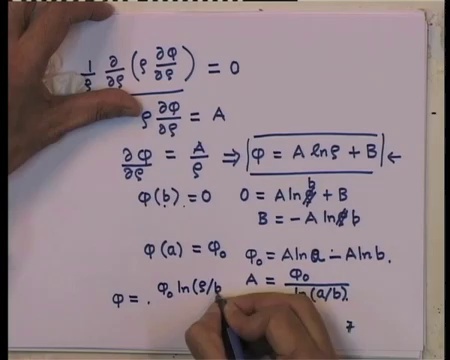 1/ρ ∂/∂ρ (ρ ∂φ/∂ρ) = 0
ρ ∂φ/∂ρ = A
∂φ/∂ρ = A/ρ ⇒ φ = A ln ρ + B ←
φ(b) = 0 0 = A ln b + B
B = - A ln b
φ(a) = φ₀ φ₀ = A ln a - A ln b.
φ = . φ₀ ln (ρ/b A = φ₀/ln(a/b).
7